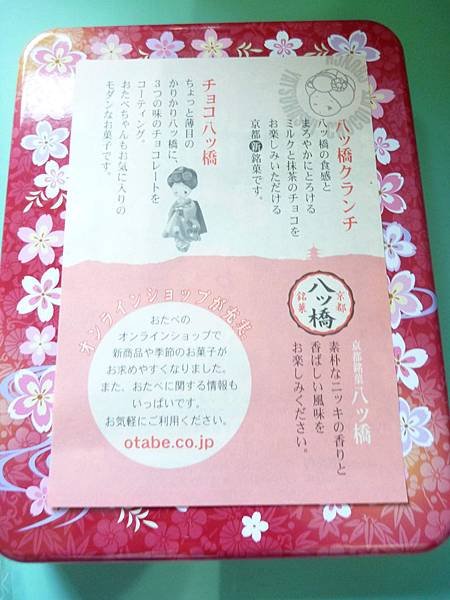 八ッ橋クランチ
八ッ橋の食感と
まろやかにとろける
ミルクと抹茶のチョコを
お楽しみいただける
京都新銘菓です。
チョコ八ッ橋
ちょっと薄目の
かりかり八ッ橋に、
3つの味のチョコレートを
コーティング。
おたべちゃんもお気に入りの
モダンなお菓子です。
京都銘菓 八ッ橋
素朴なニッキの香りと
香ばしい風味を
お楽しみください。
京都
八ッ橋
銘菓
オンラインショップが
おたべの
オンラインショップで
新商品や季節のお菓子が
お求めやすくなりました。
また、おたべに関する情報も
いっぱいです。
お気軽にご利用ください。
otabe.co.jp